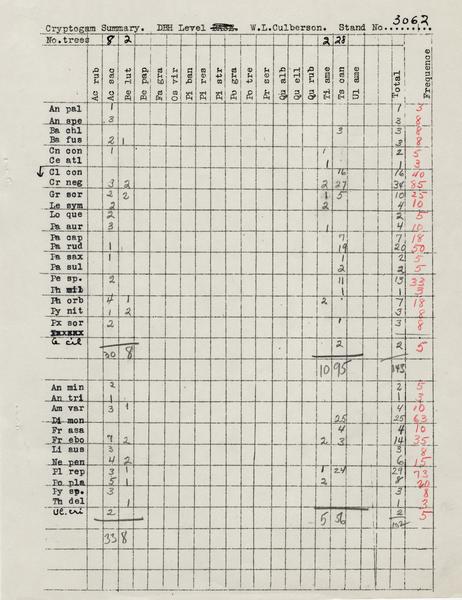 Cryptogam Summary. DBH Level W.L.Culberson. Stand No. 3062
No.trees 8 2 2 28
Ac rub Ac sac Be lut Be pap Fa gra Os vir Pi ban Pi res Pi str Po gra Po tre Pr ser Qu alb Qu ell Qu rub Ti ame Ts can Ul ame Total Frequence
An pal 1 1 3
An spe 3 3 8
Ba chl 3 3 8
Ba fus 2 1 3 8
Cn con 1 1 2 5
Ce atl 1 1 3
Cl con 16 16 40
Cr neg 3 2 2 27 34 85
Gr scr 2 2 1 5 10 25
Le sym 2 2 4 10
Lo que 2 2 5
Pa aur 3 1 4 10
Pa cap 7 7 18
Pa rud 1 19 20 50
Pa sax 1 1 2 5
Pa sul 2 2 5
Pe sp. 2 11 13 33
Ph mil 1 1 3
Ph orb 4 1 2 7 18
Py nit 1 2 3 8
Px sor 2 1 3 8
G cil 2 2 5
30 8 10 95 143
An min 2 2 5
An tri 1 1 3
Am var 3 1 4 10
Di mon 25 25 63
Fr asa 4 4 10
Fr ebo 7 2 2 3 14 35
Li aus 3 3 8
Ne pen 4 2 6 15
Pl rep 3 1 24 29 73
Po pla 5 1 2 8 20
Py sp. 3 3 8
Th del 1 1 3
Ul. cri 2 2 5
33 8 5 56 102